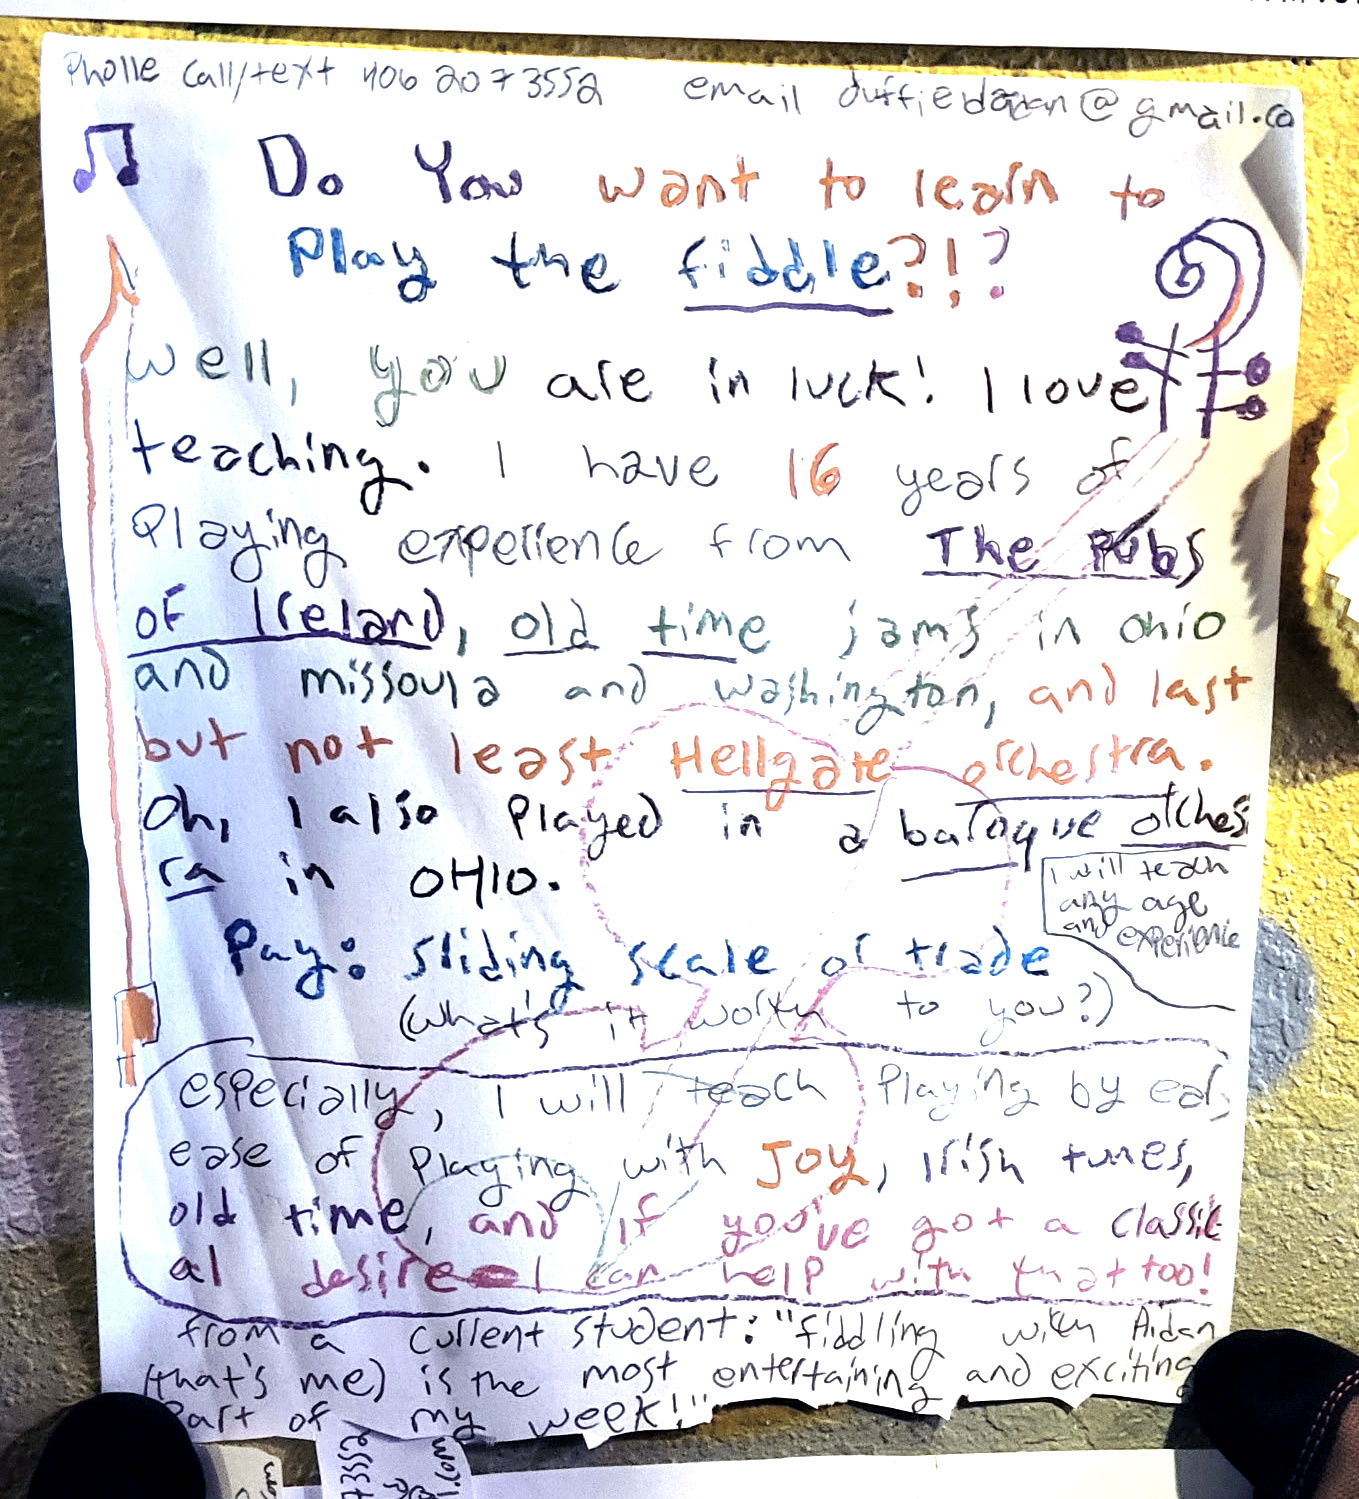 Phone call/text 406 207 3552 email duffiedaidan@gmail.co
Do You want to learn to
Play the fiddle?!?
well, you are in luck! I love
teaching. I have 16 years of
Playing experience from The Pubs
of Ireland, old time jams in Ohio
and missoula and washington, and last
but not least Hellgate orchestra.
Oh, I also Played in a baroque orches
ra in OHIO.
I will teach
any age
and experience
Pay: sliding scale or trade
(what's it worth to you?)
especially, I will teach Playing by ear,
ease of Playing with Joy, Irish tunes,
old time, and if you've got a classic
al desire I can help with that too!
from a current student: "fiddling with Aidan
(that's me) is the most entertaining and exciting
Part of my week!"